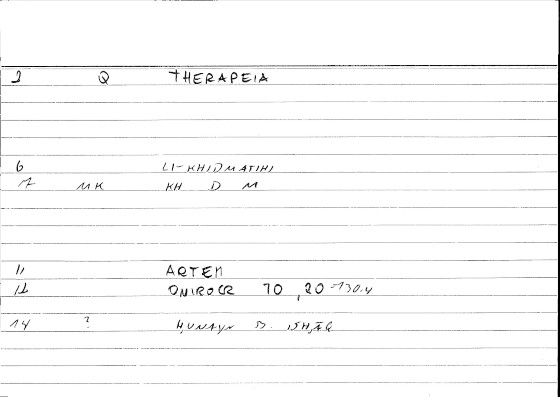 2 Q THERAPEIA
6 LI-KHIDMATIHI
7 MK KH D M
11 ARTEM
12 ONIROCR 70,20-130.4
14 ? ḤUNAYN B. ISḤĀQ